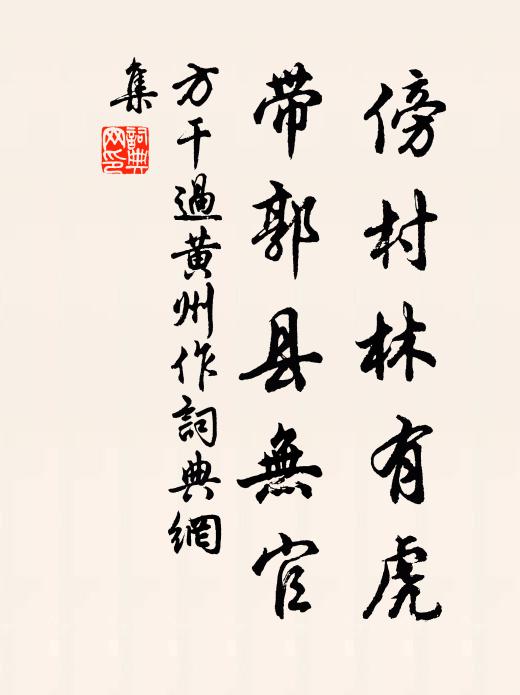 傍村林有虎
帶郭县無官
方干過黃州作詞典網
集
詞典
网印